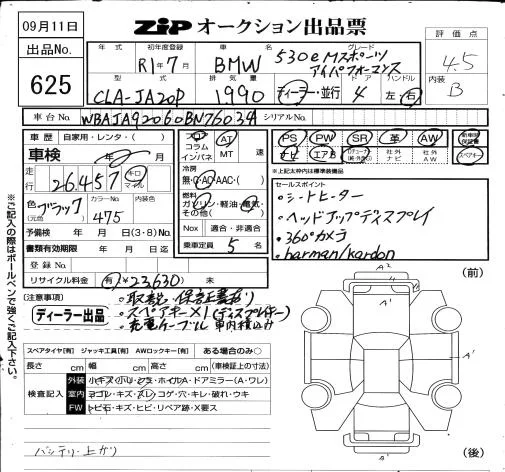 09月11日
ZiP オークション出品票
出品No. 625
評価点 4.5
内装 B
年式 初年度登録 R1年7月
車名 BMW
グレード 530e Mスポーツ アイパフォーマンス
型式 CLA-JA20P
排気量 1990
ディーラー・並行
ドア 4
ハンドル 左・右
車台No. WBAJA92060BN76034 シリアルNo.
車歴 自家用・レンタ・( )
車検 年 月
走行 26,457 キロ マイル
色 ブラック (元色)
カラーNo. 475
内装色
予備検 年 月 日(3・8)No.
書類有効期限 年 月 日迄
登録No.
リサイクル料金 有 ¥23,630) 未
コラム AT
インパネ MT 速
冷房
無・C・AC・AAC・( )
燃料
ガソリン・軽油・電気・
その他( )
Nox 適合・非適合
乗車定員 5 名
PS PW SR 革 AW 新車時保証書
ナビ エアB 社外ナビ 社外AW スペアキー
※上記太枠内は標準装備品
セールスポイント
・シートヒーター
・ヘッドアップディスプレイ
・360°カメラ
・harman/kardon
(注意事項)
・取説・保証書有り
ディーラー出品
・スペアキー×1(ディスプレイキー)
・充電ケーブル 車内積込み
スペアタイヤ[有] ジャッキ工具[有] AWロックキー[有] ある場合のみ○
長さ cm 幅 cm 高さ cm (車検証上の寸法)
検査記入
外装 小キズ・小ヘコ・ホイルA・ドアミラー(A・ワレ)
室内 ヨゴレ・キズ・スレ・コゲ・穴・キレ・破れ・ウキ
FW トビ石・キズ・ヒビ・リペア跡・X要ス
バッテリー上がり
(前)
A²
A'
A'
A²
(後)
※ご記入の際はボールペンで強くご記入下さい。